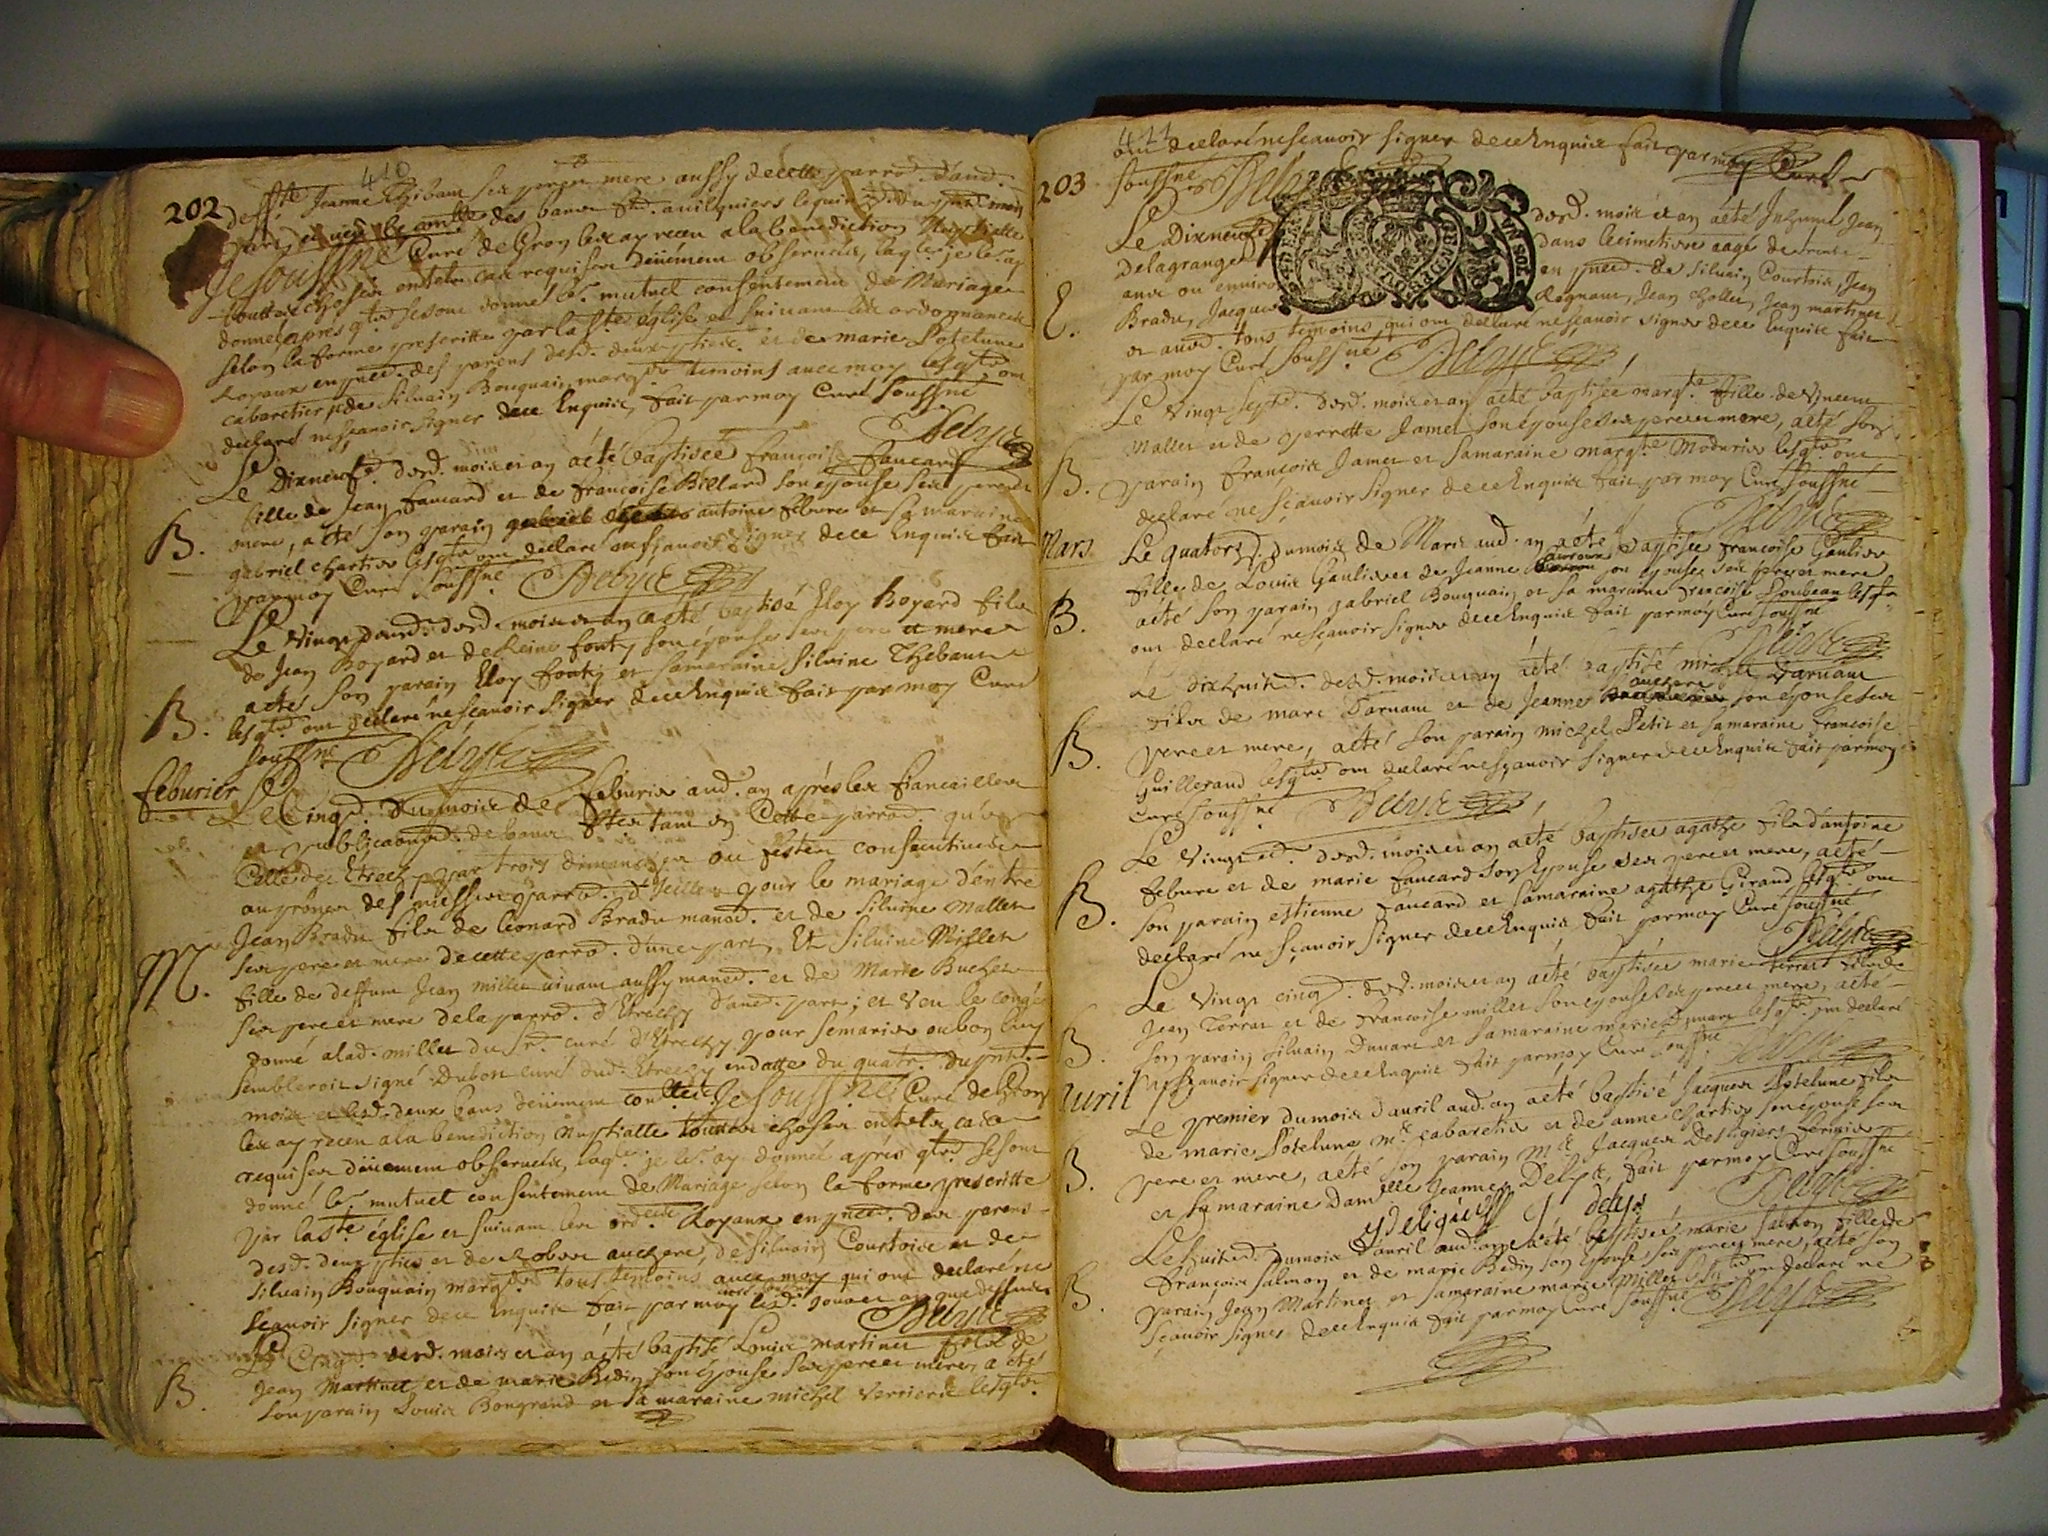 202
410
deff.te Jeanne Thibaut ses pere et mere aussy de cette parrod. d'aud.
part
Je soussné Curé de Gron les ay receu a la benediction Nuptialle
touttes choses en tels cas requises deüement observées, laq.le je les ay
donné apres q.ls se sont donné les mutuel consentement de Mariage
selon la forme prescritte par la s.te eglise et suivant les ordonnances
Royaux en pñce. des parens desd. deux pties. et de marie Potelune
cabaretier, de Silvain Bouquain marg.er temoins avec moy lesq.ls ont
declaré ne sçavoir signer de ce Enquis, fait par moy Curé soussné
Delye
Le Dixneuf.e desd. mois et an a été baptisée françoise faucard
fille de Jean faucard et de francoise Billard son épouse ses pere et
mere, a été son parain antoine febure et sa maraine
gabriel chartier lesq.ls ont declaré ne sçavoir signer de ce Enquis fait
par moy Curé soussné Delye
B.
Le vingt deux.e desd. mois et an a été baptisé Eloy Boyard fils
de Jean Boyard et de Reine fonty son épouse ses pere et mere
a été son parain Eloy fonty et sa maraine Silvine Thebaut
lesq.ls ont declaré ne sçavoir signer de ce Enquis fait par moy Curé
soussné Delye
B.
feburier
Le Cinq.e du mois de feburier aud. an apres les fiancailles
et publicaons de bans ftes tant en Cette parrod. qu'en
Celle de Etrechy par trois dimanches ou festes consecutives
au prones des messes parrod. d'Icelles pour le mariage d'entre
Jean Bradu fils de leonard Bradu manod. et de silvine mallet
ses pere et mere de cette parrod. d'une part, Et silvine Millet
M.
fille de deffunt Jean millet vivant aussy manod. et de Marie Bucher
ses pere et mere de la parrod. d'Etrechy d'aud. part; et veu le congé
donné a lad. millet du Sr. curé d'Etrechy pour se marier ou bon luy
sembleroit signé Dubost curé dud. Etrechy en datte du quatr. du pnt.
mois et lesd. deux bans deüement Je soussné Curé de Gron
les ay receu a la benediction Nuptialle touttes choses en tels cas
requises deüement observées, laq.le je les ay donné apres q.ls se sont
donné les mutuel consentement de Mariage selon la forme prescritte
par la s.te église et suivant les ord.ces Royaux en pñce. des parens
desd. deux pties et de Robert auchere, de silvain Courtois et de
silvain Bouquain marg.er tous temoins avec moy qui ont declaré ne
sçavoir signer de ce Enquis fait par moy
Delye
Le Cinq.e desd. mois et an a été baptisé Louis martinet fils de
Jean Martinet et de marie Bedin son épouse ses pere et mere, a été
B.
son parain Louis Bongrand et sa maraine michel verrierie lesq.ls
203
411
ont declaré ne sçavoir signer de ce Enquis fait par moy Curé
soussné Delye
Le Dixneuf.e desd. mois et an a été Inhumé Jean
Delagrange dans le cimetiere aagé de trente
ans ou environ en pñce. de silvain Courtois, Jean
E.
Bradu, Jacques Regnaut, Jean chollet, Jean martinet
et aud. tous temoins qui ont declaré ne sçavoir signer de ce Enquis fait
par moy Curé soussné Delye
Le vingt sept.e desd. mois et an a été baptisée marg.te fille de Vincent
mallet et de perrette Jamet son épouse ses pere et mere, a été son
B.
parain françois Jamet et sa maraine marg.te Moduries lesq.ls ont
declaré ne sçavoir signer de ce Enquis fait par moy Curé soussné
Delye
Mars
Le quatorz.e du mois de Mars aud. an a été baptisée françoise Gaulier
fille de Louis Gaulier et de Jeanne son épouse ses pere et mere
B.
a été son parain gabriel Bouquain et sa maraine francoise Loubeau lesq.ls
ont declaré ne sçavoir signer de ce Enquis fait par moy Curé soussné
Delye
Le dixhuit.e desd. mois et an a été baptisé michel Darnaut
fils de marc Darnaut et de Jeanne auchere son épouse ses
B.
pere et mere, a été son parain michel Petit et sa maraine francoise
Guillerand lesq.ls ont declaré ne sçavoir signer de ce Enquis fait par moy
Curé soussné Delye
Le vingt.e desd. mois et an a été baptisée agathe fille d'antoine
febure et de marie faucard son Epouse ses pere et mere, a été
B.
son parain estienne faucard et sa maraine agathe Giraud lesq.ls ont
declaré ne sçavoir signer de ce Enquis fait par moy Curé soussné
Delye
Le vingt cinq.e desd. mois et an a été baptisée marie terrat fille de
Jean Terrat et de francoise millet son épouse ses pere et mere, a été
B.
son parain silvain Duvart et sa maraine marie Duvart lesq.ls ont declaré
ne sçavoir signer de ce Enquis fait par moy Curé soussné Delye
Auril
Le premier du mois d'auril aud. an a été baptisé Jacques Potelune fils
de marie Potelune m.e cabaretier et de anne chartier son épouse ses
B.
pere et mere, a été son parain m.e Jacques Desligiers fermier
et sa maraine Dam.elle Jeanne Delye, fait par moy Curé soussné
J delye Delye
Le huit.e du mois d'auril aud. an a été baptisée marie salmon fille de
françois salmon et de marie Bedin son épouse ses pere et mere, a été son
B.
parain Jean Martinet et sa maraine marie millet lesq.ls ont declaré ne
sçavoir signer de ce Enquis fait par moy Curé soussné Delye